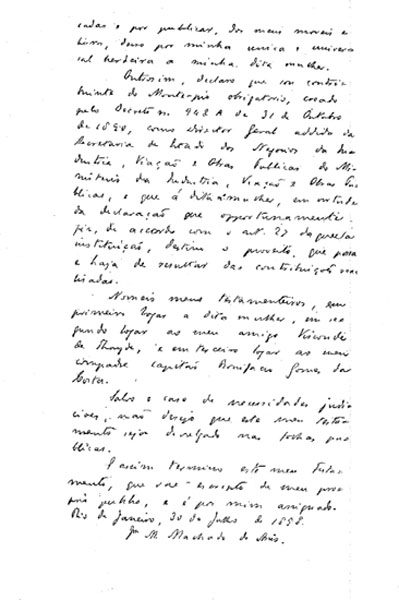 cadas e por publicar, dos meus moveis e
livros, deixo por minha unica e univer-
sal herdeira a minha dita mulher.
Outrossim, declaro que sou contri-
buinte do Monte-pio obrigatorio, creado
pelo Decreto n. 942 A de 31 de Outubro
de 1890, como Director Geral addido da
Secretaria de Estado dos Negocios da In-
dustria, Viação e Obras Publicas do Mi-
nisterio da Industria, Viação e Obras Pu-
blicas, e que á dita mulher, em virtude
da declaração que opportunamente
fiz, de accordo com o art. 27 daquella
instituição, destino o proveito, que possa
e haja de resultar das contribuições rea-
lisadas.
Nomeio meus testamenteiros, em
primeiro logar a dita mulher, em se-
gundo logar ao meu amigo Visconde
de Thayde, e em terceiro logar ao meu
compadre capitão Bonifacio Gomes da
Costa.
Salvo o caso de necessidades judi-
ciaes, não desejo que este meu testa-
mento seja divulgado nas folhas pu-
blicas.
E assim termino este meu testa-
mento, que vae escripto de meu pro-
prio punho, e é por mim assignado.
Rio de Janeiro, 30 de Julho de 1898.
M. Machado de Assis.